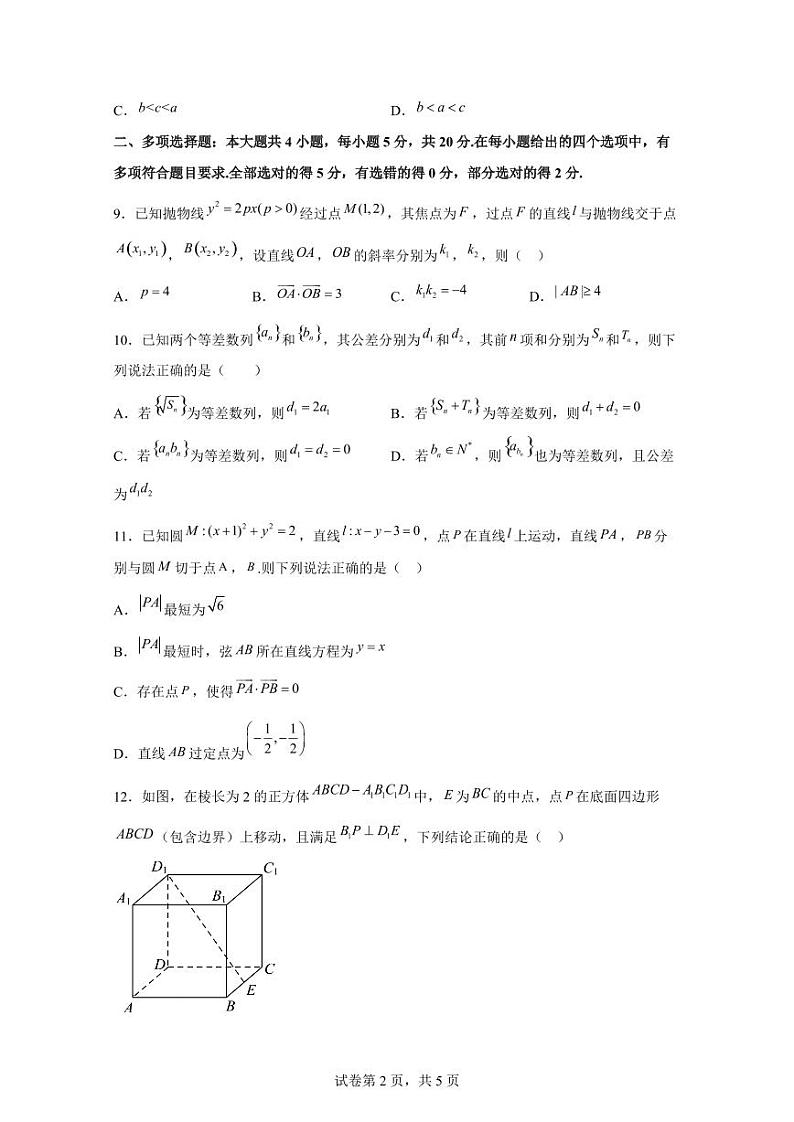 C．b<c<a D．b < a < c
二、多项选择题：本大题共 4 小题，每小题 5 分，共 20 分.在每小题给出的四个选项中，有
多项符合题目要求.全部选对的得 5 分，有选错的得 0 分，部分选对的得 2 分.
9．已知抛物线 y² = 2px(p > 0) 经过点 M(1,2)，其焦点为 F，过点 F 的直线 l 与抛物线交于点
A(x₁, y₁)，B(x₂, y₂)，设直线 OA，OB 的斜率分别为 k₁，k₂，则（ ）
A．p = 4 B．$\overrightarrow{OA}\cdot\overrightarrow{OB}=3$ C．k₁k₂ = −4 D．| AB |≥ 4
10．已知两个等差数列 {aₙ} 和 {bₙ}，其公差分别为 d₁ 和 d₂，其前 n 项和分别为 Sₙ 和 Tₙ，则下
列说法正确的是（ ）
A．若 $\{\sqrt{S_n}\}$ 为等差数列，则 d₁ = 2a₁ B．若 {Sₙ + Tₙ} 为等差数列，则 d₁ + d₂ = 0
C．若 {aₙbₙ} 为等差数列，则 d₁ = d₂ = 0 D．若 bₙ ∈ N*，则 $\{a_{b_n}\}$ 也为等差数列，且公差
为 d₁d₂
11．已知圆 M : (x + 1)² + y² = 2，直线 l : x − y − 3 = 0，点 P 在直线 l 上运动，直线 PA，PB 分
别与圆 M 切于点 A，B.则下列说法正确的是（ ）
A．|PA| 最短为 √6
B．|PA| 最短时，弦 AB 所在直线方程为 y = x
C．存在点 P，使得 $\overrightarrow{PA}\cdot\overrightarrow{PB}=0$
D．直线 AB 过定点为 $\left(-\frac{1}{2},-\frac{1}{2}\right)$
12．如图，在棱长为 2 的正方体 ABCD − A₁B₁C₁D₁ 中，E 为 BC 的中点，点 P 在底面四边形
ABCD（包含边界）上移动，且满足 B₁P ⊥ D₁E，下列结论正确的是（ ）
D₁ C₁
A₁ B₁
D C
E
A B
试卷第 2 页，共 5 页